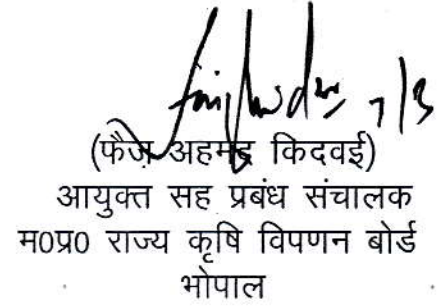 7/3
(फैज़ अहमद किदवई)
आयुक्त सह प्रबंध संचालक
म0प्र0 राज्य कृषि विपणन बोर्ड
भोपाल